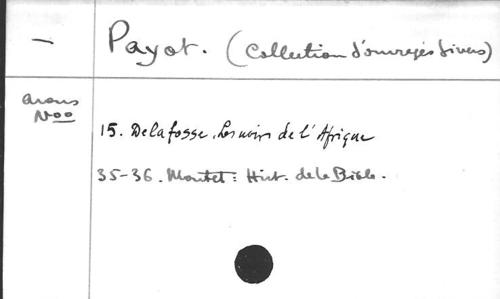 — Payot. (Collection d'ouvrages divers)
avons
Nos
15. Delafosse, Les noirs de l'Afrique
35-36. Montet: Hist. de la Bible.